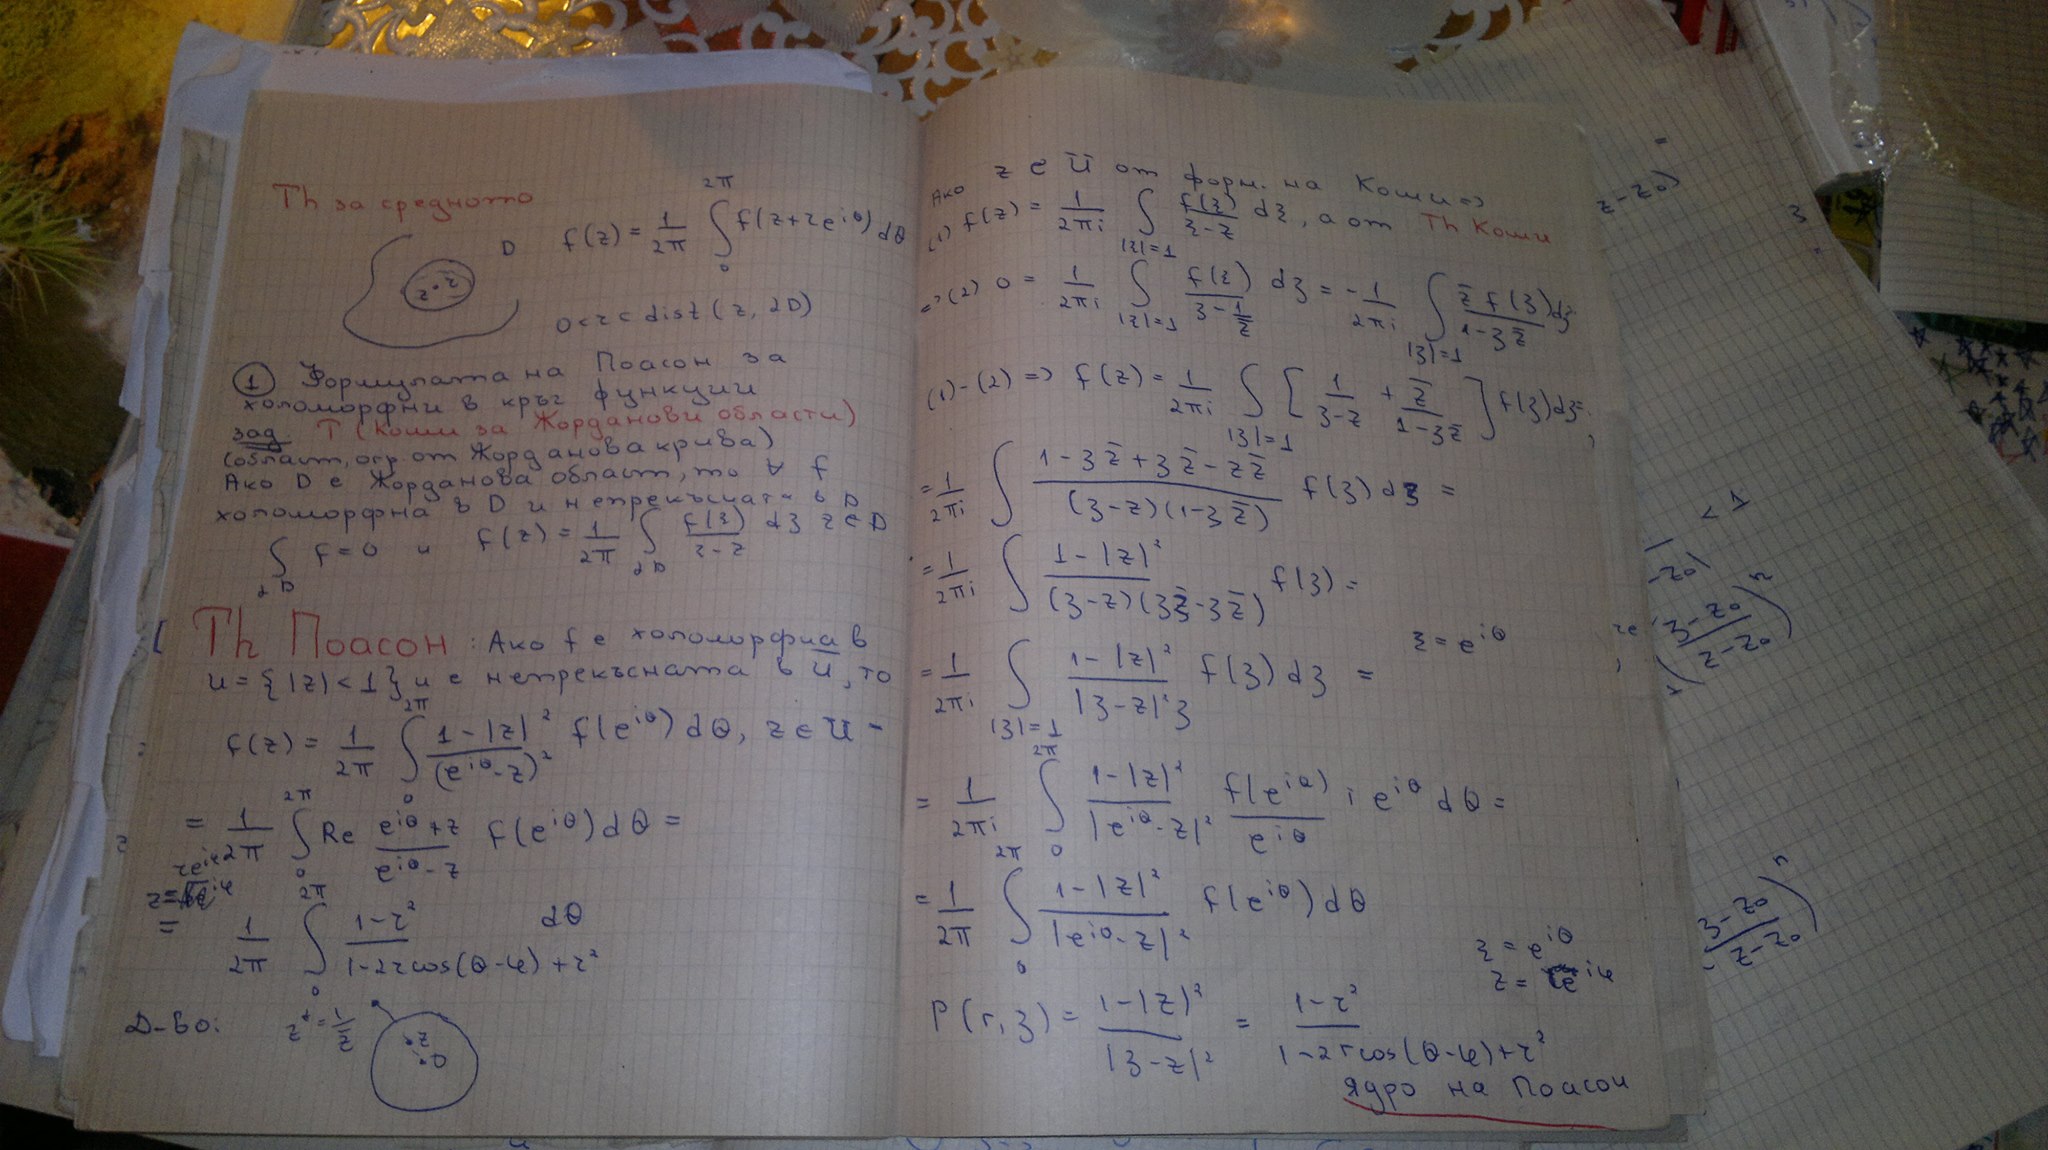 Th за средното
f(z) = 1/2π ∫₀^2π f(z+re^iθ) dθ
D
z r
0<r< dist(z, ∂D)
① Формулата на Поасон за
холоморфни в кръг функции
зад. Т (Коши за Жорданови области)
(област, огр. от Жорданова крива)
Ако D е Жорданова област, то ∀ f
холоморфна в D и непрекъсната в D̄
∫_∂D f = 0 и f(z) = 1/2π ∫_∂D f(ζ)/(ζ-z) dζ z∈D
Th Поасон: Ако f е холоморфна в
u = {|z|<1} и е непрекъсната в ū, то
f(z) = 1/2π ∫₀^2π (1-|z|²)/(e^iθ-z)² f(e^iθ) dθ, z∈u -
= 1/2π ∫₀^2π Re (e^iθ+z)/(e^iθ-z) f(e^iθ) dθ =
z=re^iφ
= 1/2π ∫₀^2π (1-r²)/(1-2rcos(θ-φ)+r²) dθ
Д-во: z* = 1/z̄
z
0
Ако z ∈ u от форм. на Коши =>
(1) f(z) = 1/2πi ∫_|ζ|=1 f(ζ)/(ζ-z) dζ, а от Th Коши
=> (2) 0 = 1/2πi ∫_|ζ|=1 f(ζ)/(ζ-1/z̄) dζ = -1/2πi ∫_|ζ|=1 z̄ f(ζ)/(1-ζz̄) dζ
(1)-(2) => f(z) = 1/2πi ∫_|ζ|=1 [1/(ζ-z) + z̄/(1-ζz̄)] f(ζ) dζ =
= 1/2πi ∫ (1-ζz̄+ζz̄-zz̄)/((ζ-z)(1-ζz̄)) f(ζ) dζ =
= 1/2πi ∫ (1-|z|²)/((ζ-z)(ζζ̄-ζz̄)) f(ζ) =
= 1/2πi ∫_|ζ|=1 (1-|z|²)/(|ζ-z|²ζ) f(ζ) dζ = ζ = e^iθ
= 1/2πi ∫₀^2π (1-|z|²)/|e^iθ-z|² f(e^iθ)/e^iθ i e^iθ dθ =
= 1/2π ∫₀^2π (1-|z|²)/|e^iθ-z|² f(e^iθ) dθ
ζ = e^iθ
z = re^iφ
P(r,ζ) = (1-|z|²)/|ζ-z|² = (1-r²)/(1-2rcos(θ-φ)+r²)
Ядро на Поасон
z-z₀)
< 1
(ζ-z₀)/(z-z₀))ⁿ
ζ-z₀/z-z₀)ⁿ